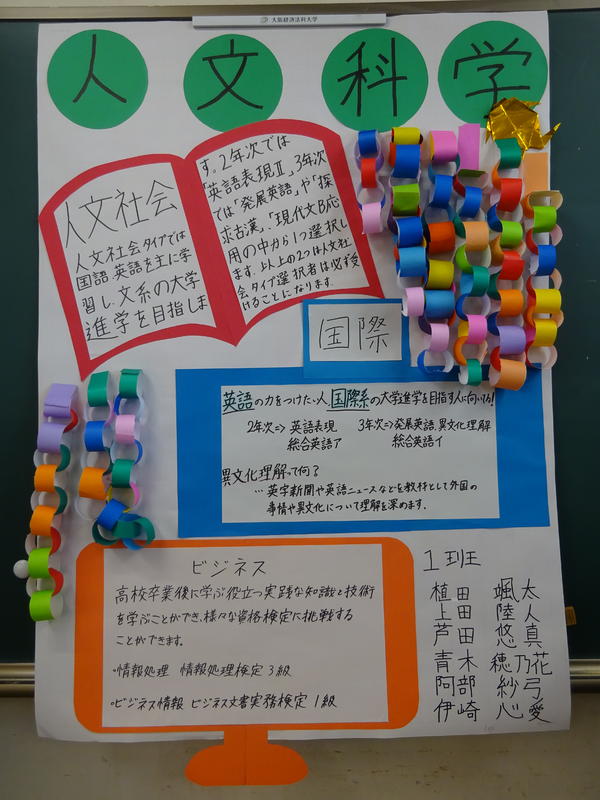 大阪経済法科大学
人文科学
人文社会
人文社会タイプでは
国語、英語を主に学
習し、文系の大学
進学を目指しま
す。2年次では
「英語表現Ⅱ」、3年次
では「発展英語」や「探
求古漢」、「現代文B応
用の中から1つ選択し
ます。以上の2つは人文社
会タイプ選択者は必ず受
けることになります。
国際
英語の力をつけたい人、国際系の大学進学を目指す人に向いてる!
2年次⇒英語表現 3年次⇒発展英語、異文化理解
総合英語ア 総合英語イ
異文化理解って何?
…英字新聞や英語ニュースなどを教材として外国の
事情や異文化について理解を深めます。
ビジネス
高校卒業後に学ぶ役立つ実践な知識と技術
を学ぶことができ、様々な資格検定に挑戦する
ことができます。
・情報処理 情報処理検定3級
・ビジネス情報 ビジネス文書実務検定1級
1班
植田 颯太
上田 陸人
芦田 悠真
青木 穂乃花
阿部 紗弓
伊崎 心愛